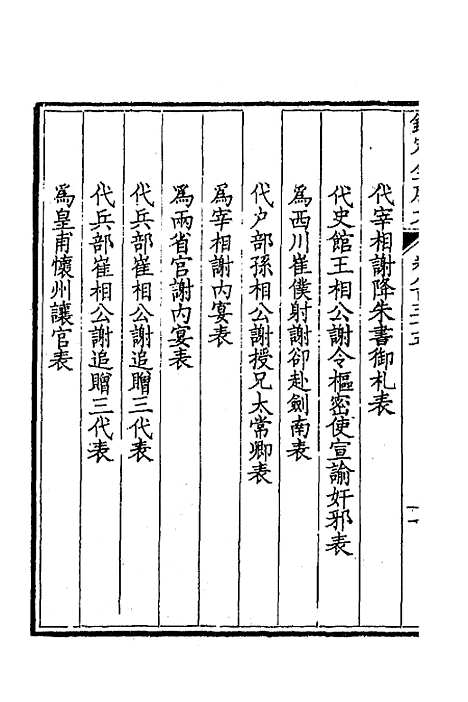 代宰相謝降朱書御札表
代史館王相公謝令樞密使宣諭奸邪表
為西川崔僕射謝卻赴劍南表
代户部孫相公謝授兄太常卿表
為宰相謝内宴表
為兩省官謝内宴表
代兵部崔相公謝追贈三代表
代兵部崔相公謝追贈三代表
為皇甫懷州讓官表